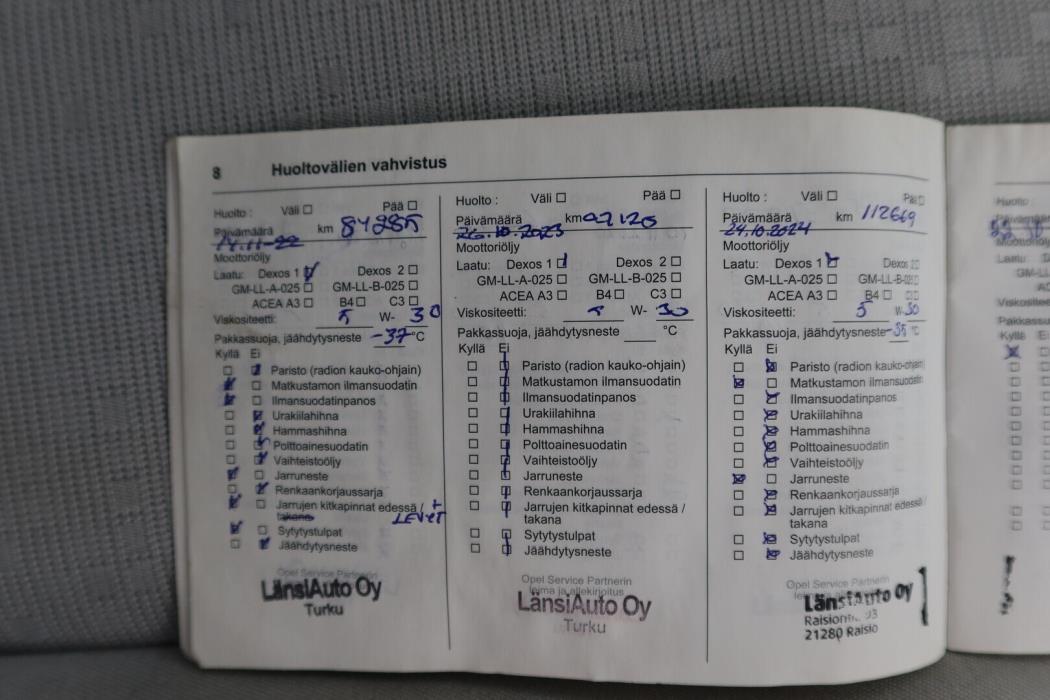 8 Huoltovälien vahvistus
Huolto : Väli Pää
Päivämäärä km 84285
24.11-22
Moottoriöljy
Laatu: Dexos 1 Dexos 2
GM-LL-A-025 GM-LL-B-025
ACEA A3 B4 C3
Viskositeetti: 5 W- 30
Pakkassuoja, jäähdytysneste -37 °C
Kyllä Ei
Paristo (radion kauko-ohjain)
Matkustamon ilmansuodatin
Ilmansuodatinpanos
Urakiilahihna
Hammashihna
Polttoainesuodatin
Vaihteistoöljy
Jarruneste
Renkaankorjaussarja
Jarrujen kitkapinnat edessä / +
takana LEVYT
Sytytystulpat
Jäähdytysneste
Opel Service Partnerin
LänsiAuto Oy
Turku
Huolto : Väli Pää
Päivämäärä km
26.10.2023
Moottoriöljy
Laatu: Dexos 1 Dexos 2
GM-LL-A-025 GM-LL-B-025
ACEA A3 B4 C3
Viskositeetti: 5 W- 30
Pakkassuoja, jäähdytysneste °C
Kyllä Ei
Paristo (radion kauko-ohjain)
Matkustamon ilmansuodatin
Ilmansuodatinpanos
Urakiilahihna
Hammashihna
Polttoainesuodatin
Vaihteistoöljy
Jarruneste
Renkaankorjaussarja
Jarrujen kitkapinnat edessä /
takana
Sytytystulpat
Jäähdytysneste
Opel Service Partnerin
leima ja allekirjoitus
LänsiAuto Oy
Turku
Huolto : Väli Pää
Päivämäärä km 112669
24.10.2024
Moottoriöljy
Laatu: Dexos 1 Dexos 2
GM-LL-A-025 GM-LL-B-025
ACEA A3 B4 C3
Viskositeetti: 5 W- 30
Pakkassuoja, jäähdytysneste -35 °C
Kyllä Ei
Paristo (radion kauko-ohjain)
Matkustamon ilmansuodatin
Ilmansuodatinpanos
Urakiilahihna
Hammashihna
Polttoainesuodatin
Vaihteistoöljy
Jarruneste
Renkaankorjaussarja
Jarrujen kitkapinnat edessä /
takana
Sytytystulpat
Jäähdytysneste
Opel Service Partnerin
LänsiAuto Oy
21280 Raisio